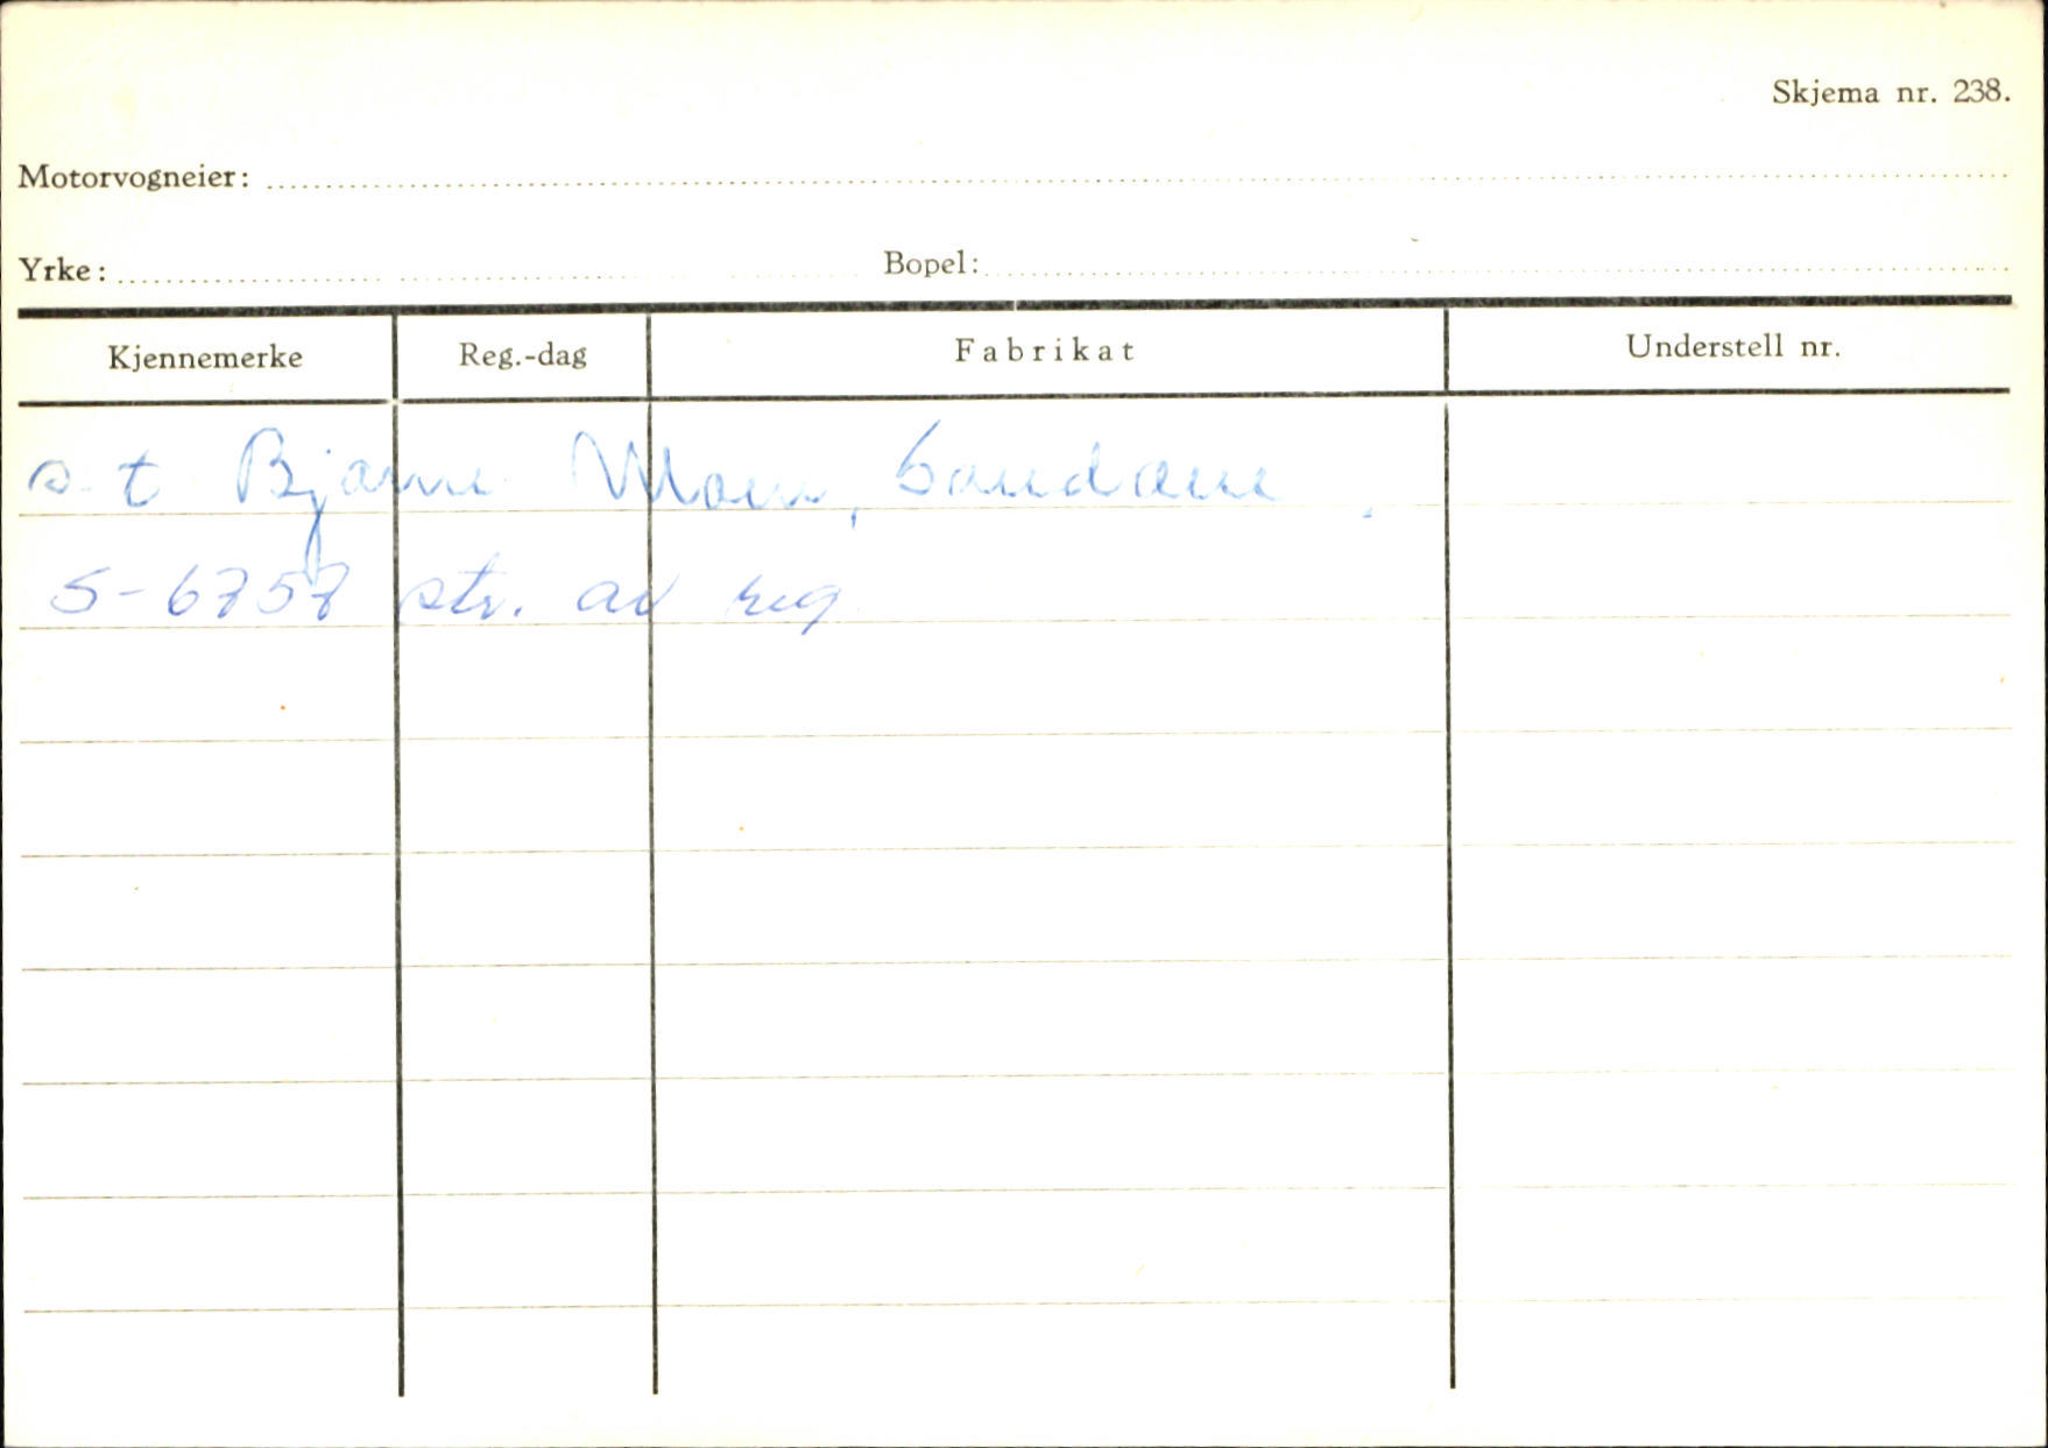 Skjema nr. 238.
Motorvogneier:
Yrke: Bopel:
Kjennemerke Reg.-dag Fabrikat Understell nr.
s.t Bjarne Moen, Sandane.
S-6757 str. av reg